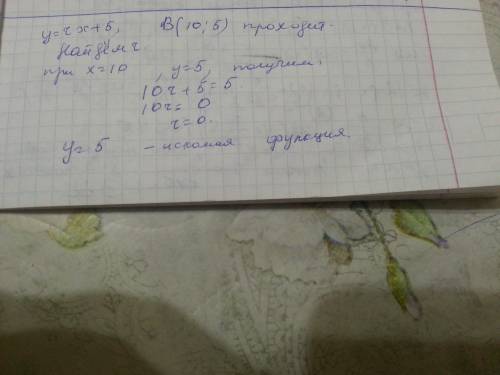 y=rx+5, B(10;5) проходит.
Найдём r.
при x=10, y=5, получим:
10r+5=5.
10r=0
r=0.
y=5 - искомая функция.